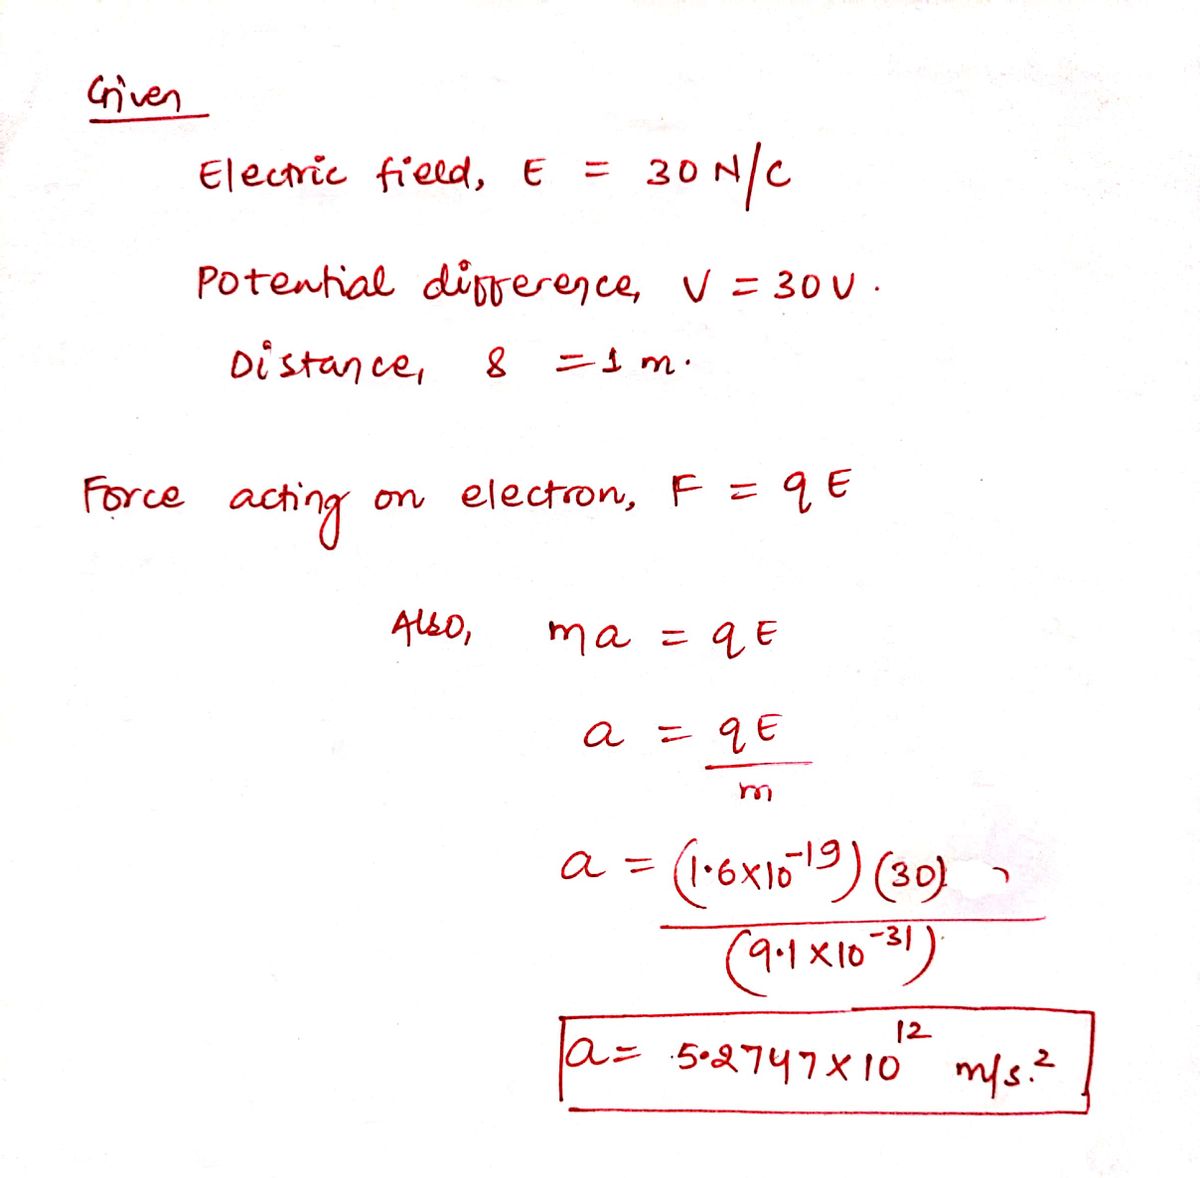 Given
Electric field, E = 30 N/C
Potential difference, V = 30 V.
Distance, s = 1 m.
Force acting on electron, F = qE
Also, ma = qE
a = qE
m
a = (1.6×10⁻¹⁹) (30)
(9.1×10⁻³¹)
a = 5.2747×10¹² m/s.²